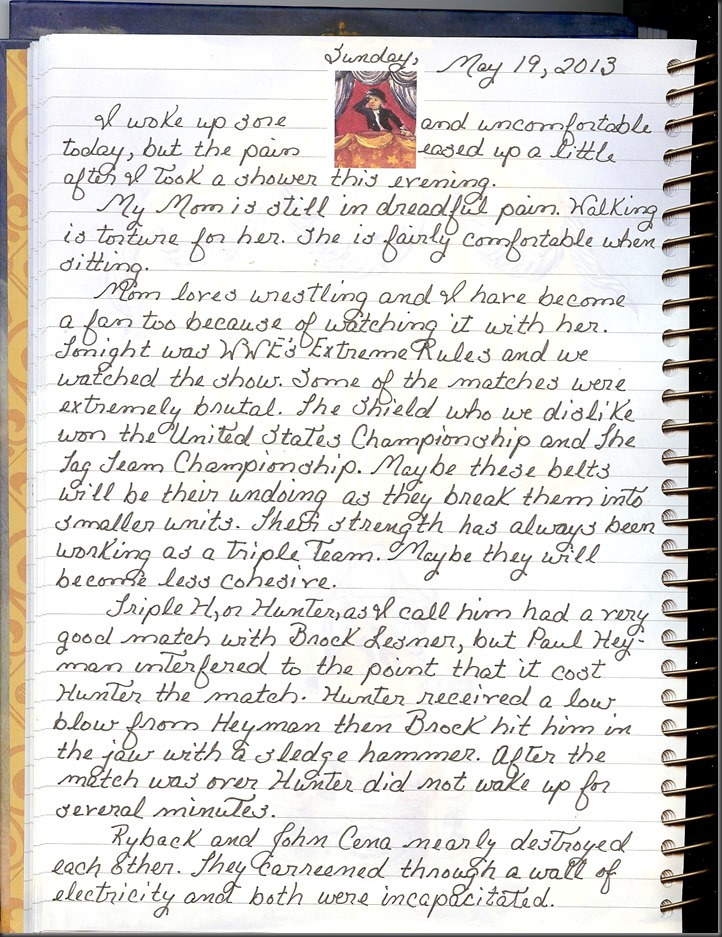 Sunday, May 19, 2013
I woke up sore and uncomfortable
today, but the pain eased up a little
after I took a shower this evening.
My Mom is still in dreadful pain. Walking
is torture for her. She is fairly comfortable when
sitting.
Mom loves wrestling and I have become
a fan too because of watching it with her.
Tonight was WWE's Extreme Rules and we
watched the show. Some of the matches were
extremely brutal. The Shield who we dislike
won the United States Championship and The
Tag Team Championship. Maybe these belts
will be their undoing as they break them into
smaller units. Their strength has always been
working as a triple team. Maybe they will
become less cohesive.
Triple H, or Hunter, as I call him had a very
good match with Brock Lesner, but Paul Hey-
man interfered to the point that it cost
Hunter the match. Hunter received a low
blow from Heyman then Brock hit him in
the jaw with a sledge hammer. After the
match was over Hunter did not wake up for
several minutes.
Ryback and John Cena nearly destroyed
each other. They carreened through a wall of
electricity and both were incapacitated.